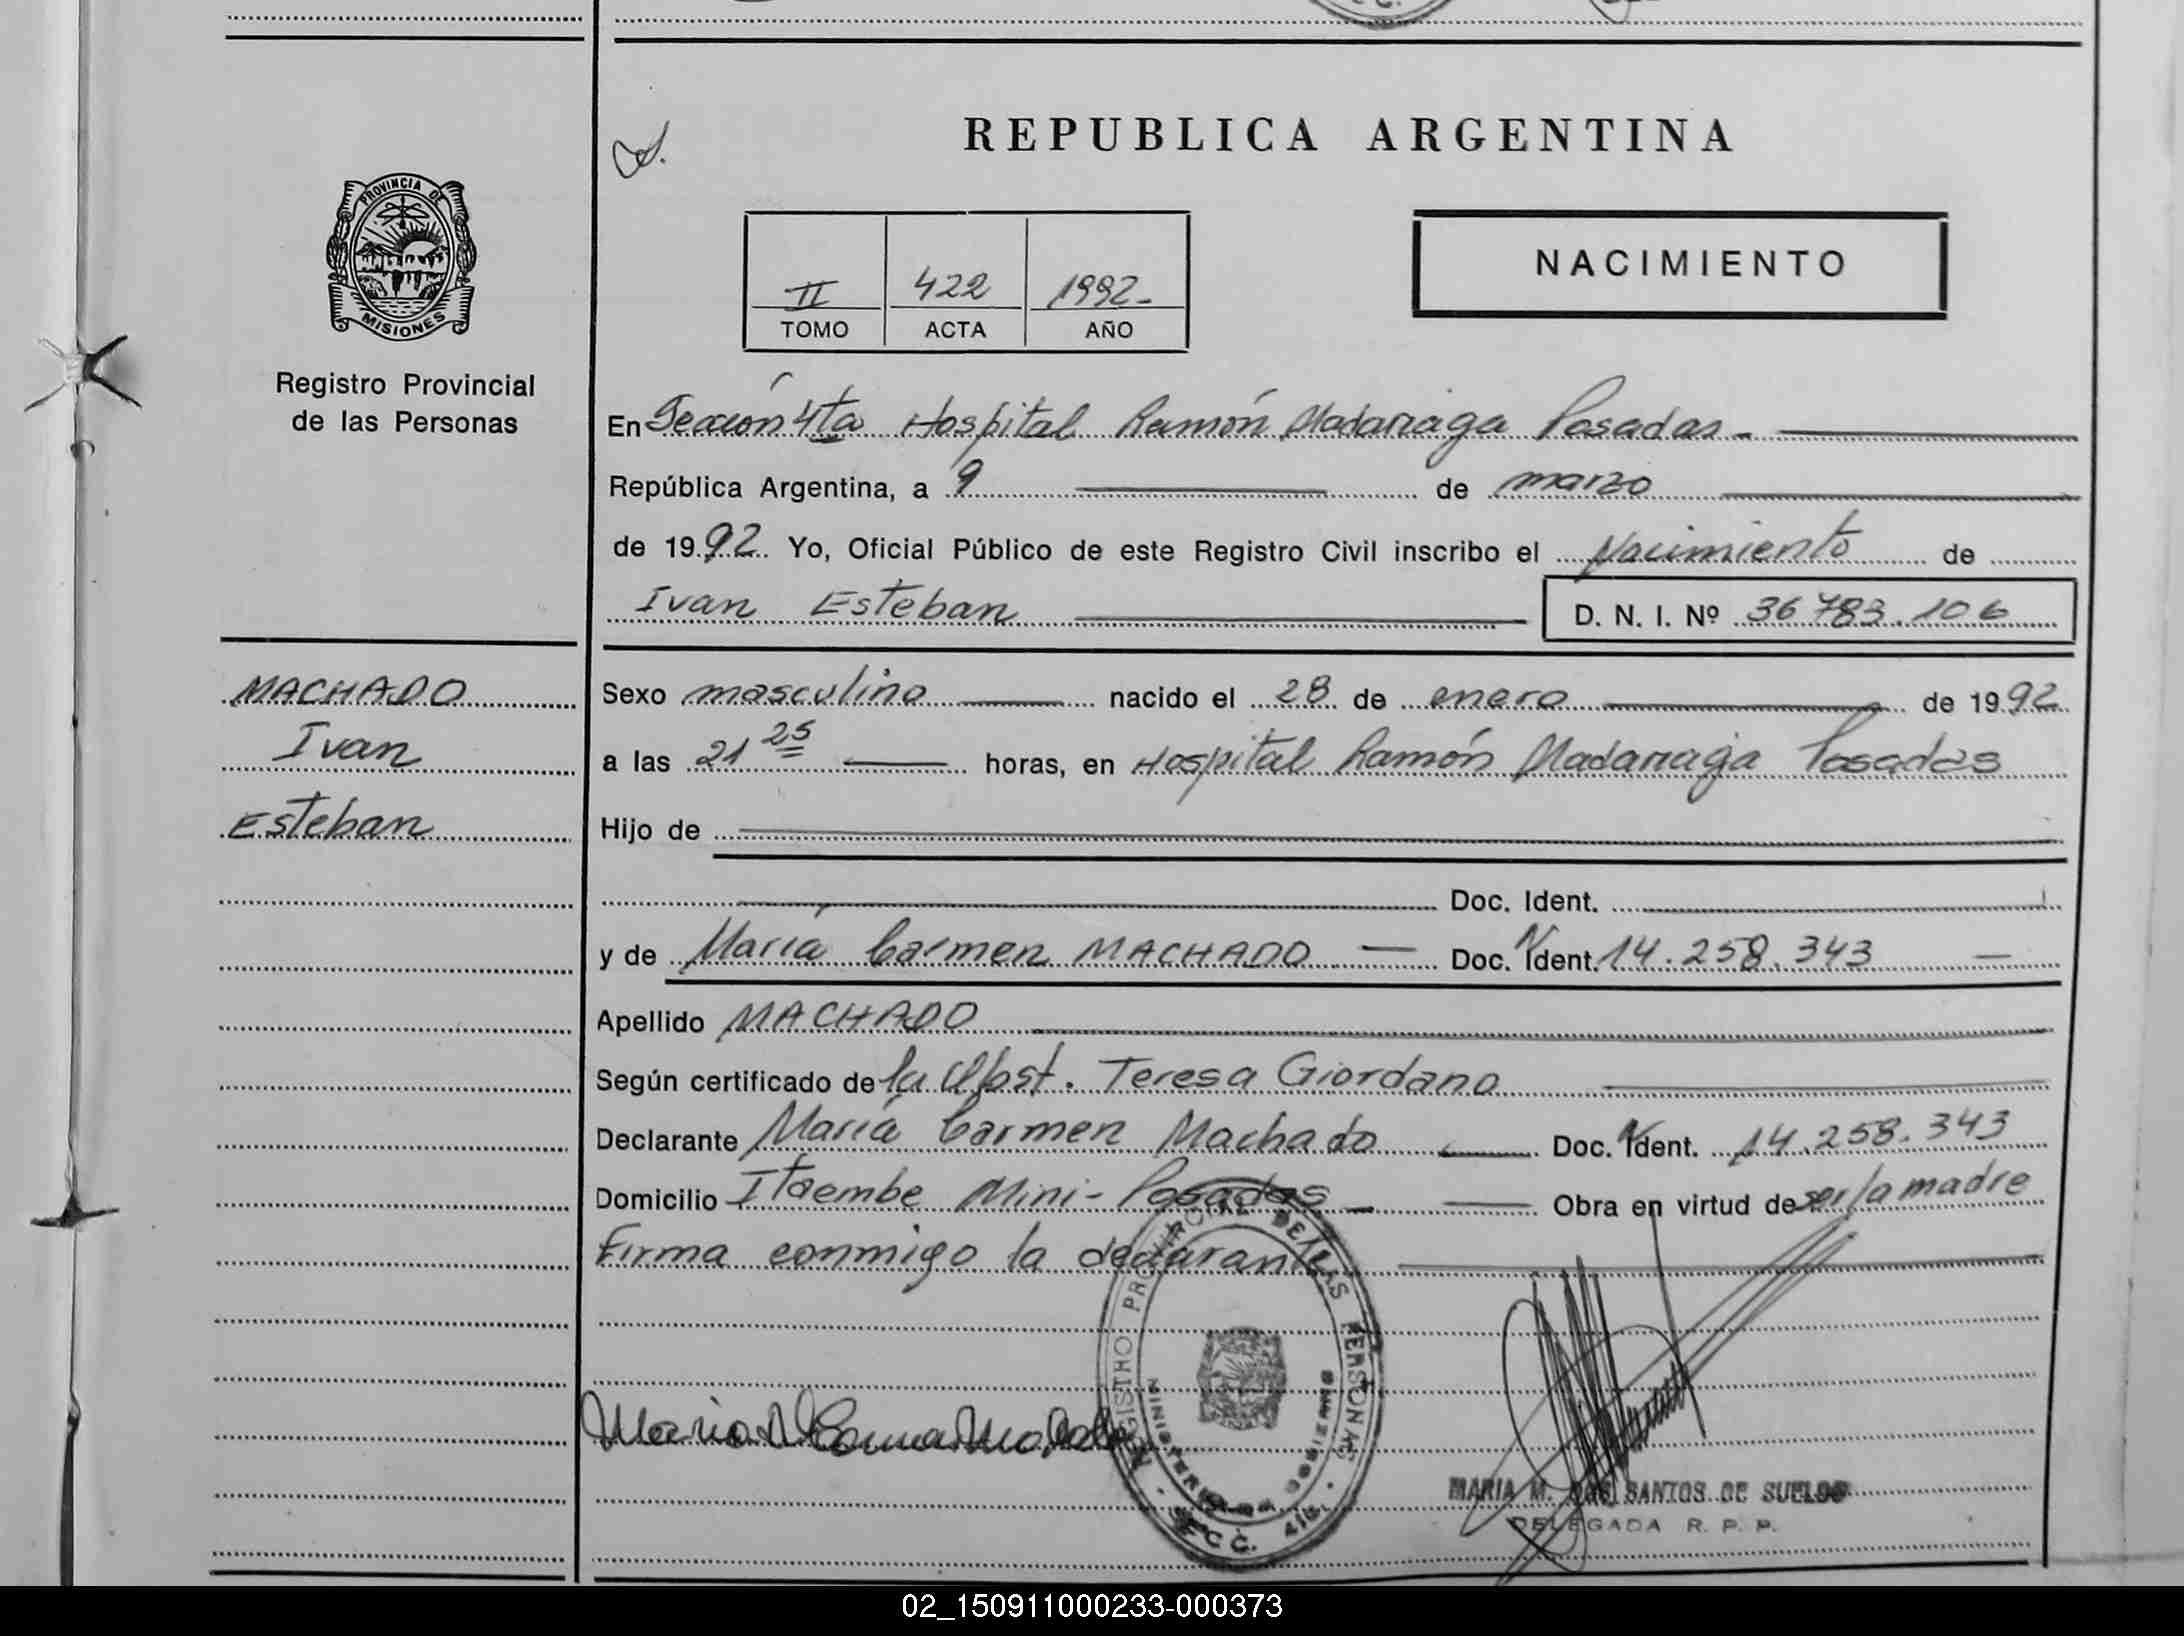 REPUBLICA ARGENTINA
PROVINCIA DE
MISIONES
Registro Provincial
de las Personas
II 422 1992-
TOMO ACTA AÑO
NACIMIENTO
En Sección 4ta Hospital Ramón Madariaga Posadas -
República Argentina, a 9 de marzo
de 1992 Yo, Oficial Público de este Registro Civil inscribo el Nacimiento de
Ivan Esteban D. N. I. Nº 36 783.106
MACHADO
Ivan
Esteban
Sexo masculino nacido el 28 de enero de 1992
a las 21 25 horas, en Hospital Ramón Madariaga Posadas
Hijo de
Doc. Ident.
y de María Carmen MACHADO Doc. Ident. 14.258.343
Apellido MACHADO
Según certificado de la Obst. Teresa Giordano
Declarante María Carmen Machado Doc. Ident. 14.258.343
Domicilio Itaembe Mini- Posadas Obra en virtud de ser la madre
Firma conmigo la declarante
REGISTRO PROVINCIAL DE LAS PERSONAS
MINISTERIO DE GOBIERNO
SECC. 4ta.
MARIA M. DOS SANTOS DE SUELDO
DELEGADA R. P. P.
02_150911000233-000373